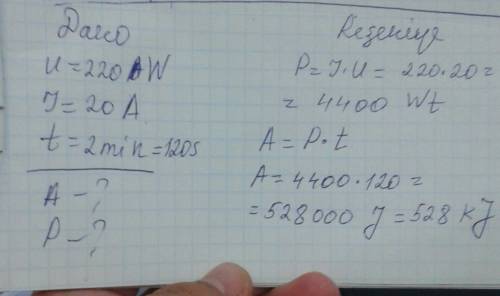 Dano
U = 220 W
I = 20 A
t = 2 min = 120 s
A – ?
P – ?
Rezenize
P = I · U = 220 · 20 =
= 4400 Wt
A = P · t
A = 4400 · 120 =
= 528000 J = 528 kJ